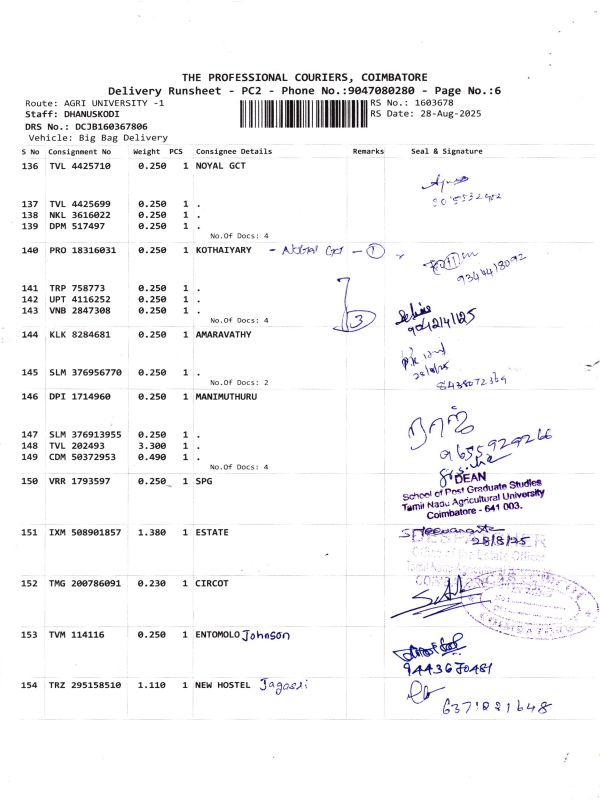 THE PROFESSIONAL COURIERS, COIMBATORE
Delivery Runsheet - PC2 - Phone No.:9047080280 - Page No.:6
Route: AGRI UNIVERSITY -1 RS No.: 1603678
Staff: DHANUSKODI RS Date: 28-Aug-2025
DRS No.: DCJB160367806
Vehicle: Big Bag Delivery
S No Consignment No Weight PCS Consignee Details Remarks Seal & Signature
136 TVL 4425710 0.250 1 NOYAL GCT
137 TVL 4425699 0.250 1 .
138 NKL 3616022 0.250 1 .
139 DPM 517497 0.250 1 .
No.Of Docs: 4
140 PRO 18316031 0.250 1 KOTHAIYARY
9344418092
141 TRP 758773 0.250 1 .
142 UPT 4116252 0.250 1 .
143 VNB 2847308 0.250 1 . 3
No.Of Docs: 4
144 KLK 8284681 0.250 1 AMARAVATHY
145 SLM 376956770 0.250 1 .
No.Of Docs: 2 8438072369
146 DPI 1714960 0.250 1 MANIMUTHURU
147 SLM 376913955 0.250 1 .
148 TVL 202493 3.300 1 .
149 CDM 50372953 0.490 1 .
No.Of Docs: 4 9655929266
150 VRR 1793597 0.250 1 SPG
DEAN
School of Post Graduate Studies
Tamil Nadu Agricultural University
Coimbatore - 641 003.
151 IXM 508901857 1.380 1 ESTATE
28/8/25
Office of the Estate Officer
152 TMG 200786091 0.230 1 CIRCOT
153 TVM 114116 0.250 1 ENTOMOLO Johnson
9443670481
154 TRZ 295158510 1.110 1 NEW HOSTEL